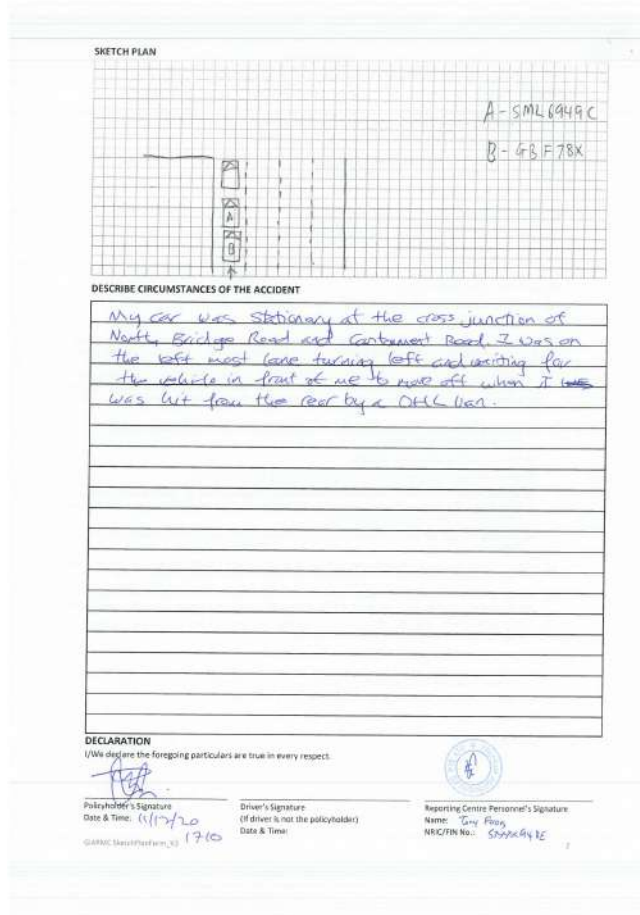 SKETCH PLAN
A - SML6949C
B - GBF78X
A
B
DESCRIBE CIRCUMSTANCES OF THE ACCIDENT
My car was stationary at the cross junction of
North Bridge Road and Road, I was on
the left most lane turning left and waiting for
the vehicle in front of me to move off when I was
was hit from the rear by a DHL van.
DECLARATION
I/We declare the foregoing particulars are true in every respect.
Policyholder's Signature
Date & Time:
1710
Driver's Signature
(If driver is not the policyholder)
Date & Time:
Reporting Centre Personnel's Signature
Name: Tony
NRIC/FIN No.: